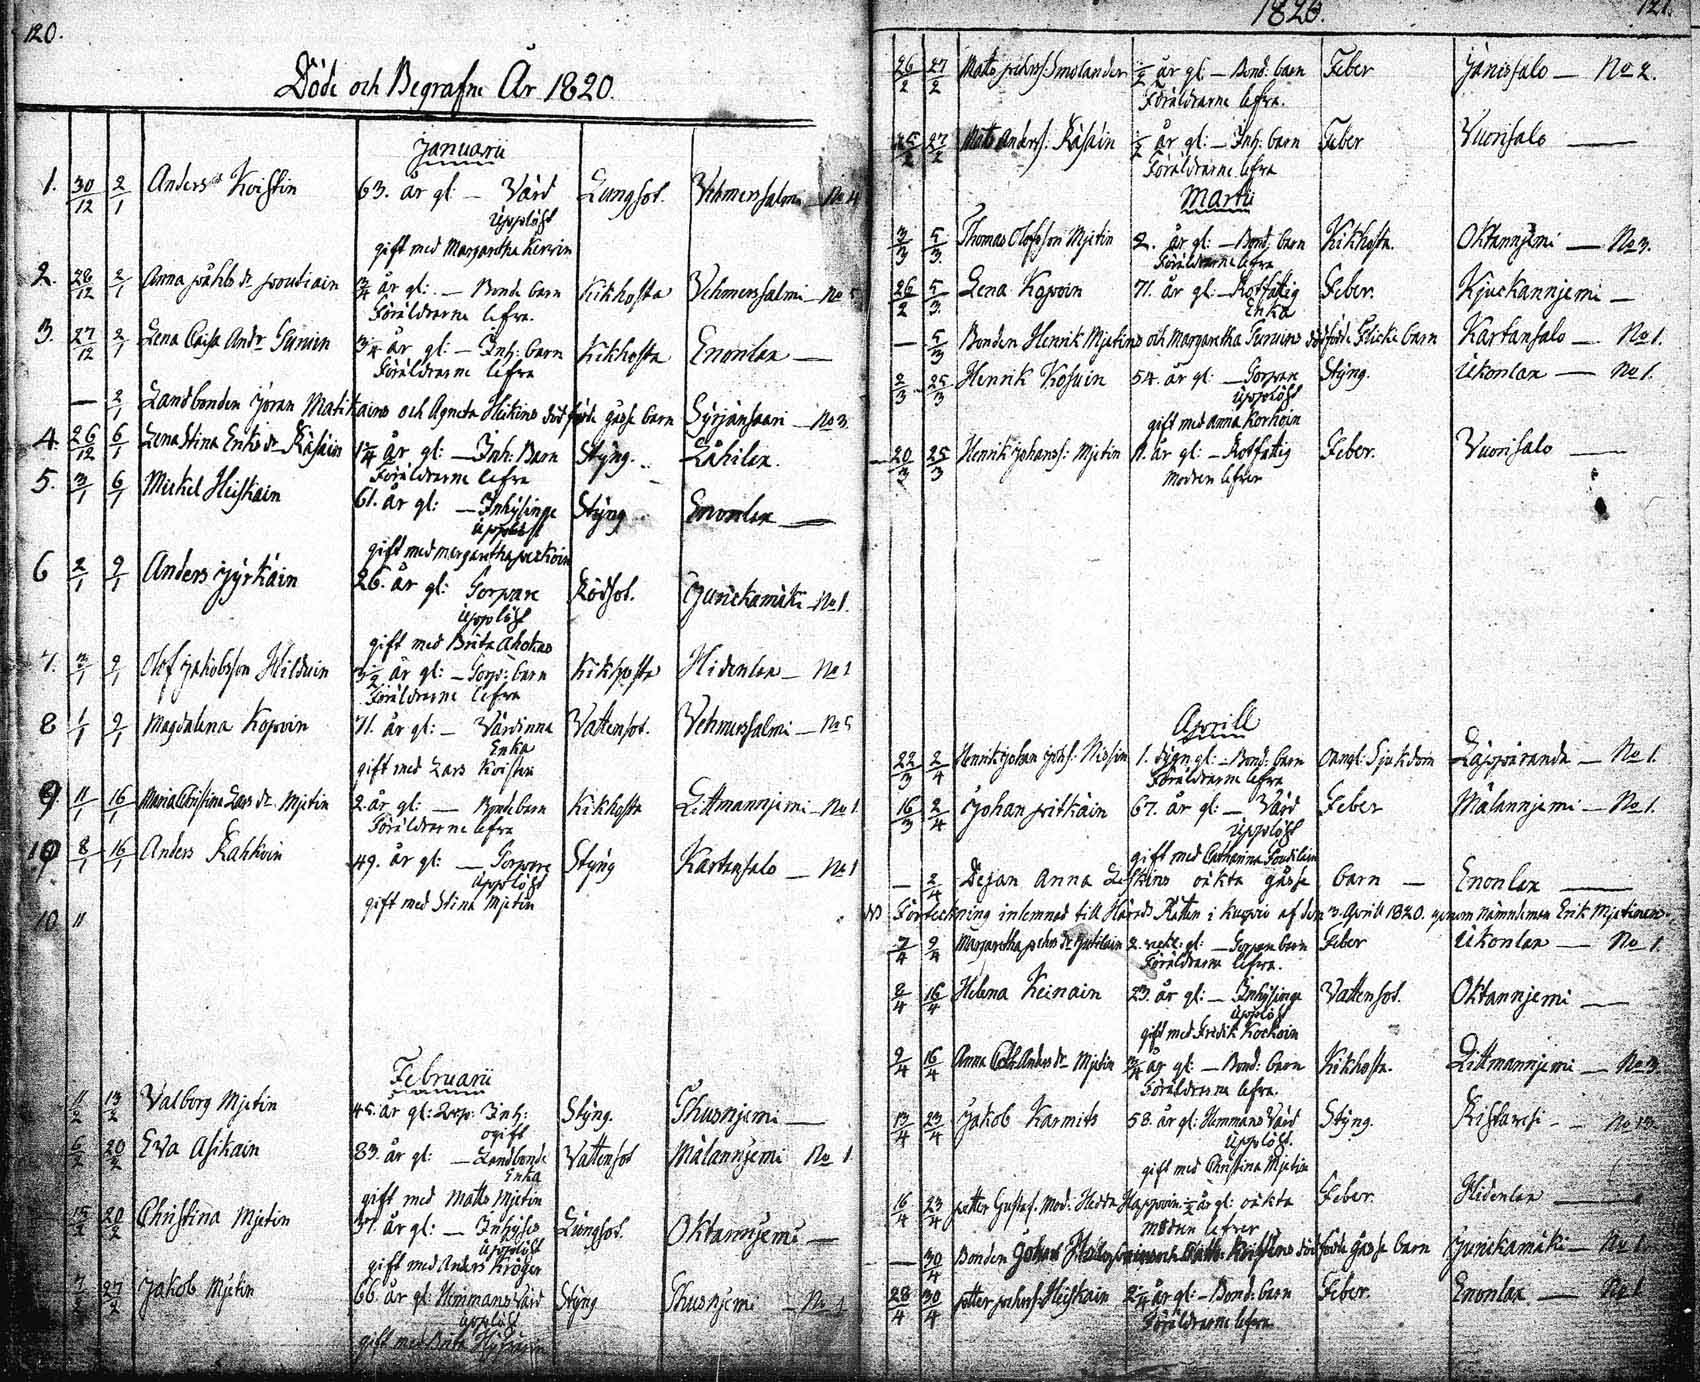 120.
Döde och Begrafne År 1820.
Januarii
1. 30/12 2/1 Anders Koistin 63. år gl — Värd Lungsot. Vehmersalmi No 4
Upplöst
gift med Margaretha
2. 28/12 2/1 Anna Påhls dr Poutiain 3/4 år gl: — Bonde barn Kikhosta Vehmersalmi — No 5
Föräldrarne lefva.
3. 27/12 2/1 Lena Caisa Andr 3/4 år gl: — Inh: barn Kikhosta Enonlax —
Föräldrarne lefva
— 2/1 Landbonden Göran Matikains och Agneta Heikins dödfödde gåsse barn Syrjänsaari — No 3.
4. 26/12 6/1 Lena Stina Eriks dr Räsäin 1/4 år gl: — Inh: Barn Styng. Lähilax.
Föräldrarne lefva
5. 3/1 6/1 Mickel Heiskain 61. år gl: — Inhysinge Styng Enonlax —
Upplöst
gift med Margaretha
6 2/1 9/1 Anders Jyrkäin 26. år gl: Torpare Rödsot. Jurickamäki — No 1.
Upplöst
gift med Brita Ahokas
7. 3/1 9/1 Olof Jakobsson Hilduin 3 1/2 år gl: — Torp: barn Kikhosta Hidenlax — No 1
Föräldrarne lefva
8 1/1 9/1 Magdalena Kopoin 71. år gl: — Värdinna Vattensot. Vehmersalmi — No 5
Enka
gift med Lars Koistin
9. 11/1 16/1 Maria Christina Lars dr Mjetin 2. år gl: — Bonde barn Kikhosta Littmannjemi — No 1
Föräldrarne lefva
10 8/1 16/1 Anders Kahkoin 49. år gl: — Torpare Styng Kartansalo — No 1
Upplöst
gift med Stina Mjetin
10. 11
Februarii
11/2 13/2 Valborg Mjetin 45. år gl: Inh: Styng. Thusnjemi —
ogift
6/2 20/2 Eva Asikain 83. år gl: — Landbonde Vattensot Målannjemi No 1
Enka
gift med Matts Mjetin
15/2 20/2 Christina Mjetin 37. år gl: — Inhyses Lungsot. Oktannjemi —
Upplöst
gift med Anders Kröger
27/2 Jakob Mjetin 66 år gl: Hemmans Värd Styng Thusnjemi — No 1
Upplöst
gift med Brita
1820. 121.
26/2 27/2 Mats Pehrs: Smolander 1/2 år gl: — Bond: barn Feber Jänissalo — No 2.
Föräldrarne lefva.
25/2 27/2 Mats Anders: Räsäin 1/2 år gl: — Inh: barn Feber Vuorisalo —
Föräldrarne lefva
Martii
3/3 5/3 Thomas Olofsson Mjetin 2. år gl: — Bond: barn Kikhosta. Oktannjemi — No 3.
Föräldrarne lefva
26/2 5/3 Lena Kopoin 71. år gl: — Rotfatig Feber. Kjuckannjemi —
Enka
— 5/3 Bonden Henrik Mjetins och Margaretha Turuins dödfödde Flicke barn Kartansalo — No 1.
2/3 25/3 Henrik Kosuin 54. år gl: — Torpare Styng. Ukonlax — No 1.
Upplöst
gift med Anna Korhoin
20/3 25/3 Henrik Johans: Mjetin år gl: — Rotfattig Feber. Vuorisalo —
Modren lefver
Aprill
22/3 2/4 Henrik Johan Johs: Nissin 1. dygn gl: — Bond: barn Oangl: Sjukdom Läppäranda — No 1.
Föräldrarne lefva
16/3 2/4 Johan Pitkäin 67. år gl: — Värd Feber Målannjemi — No 1.
Upplöst
gift med Catharina
— 2/4 Dejan Anna Leskins oäkta gåsse barn — Enonlax —
NB Förteckning inlemnad till Härads Rätten i Kuopio af den 3 Aprill 1820. genom Nämndeman Erik Mjetinen.
7/4 9/4 Margaretha Pehrs dr Jutilain 2. veck. gl: — Torpare barn Feber Ukonlax — No 1.
Föräldrarne lefva.
8/4 16/4 Helena Keinain 23. år gl: — Inhysinge Vattensot. Oktannjemi —
Upplöst
gift med Fredik Kockoin
9/4 16/4 Anna Cath: Anders dr Mjetin 3/4 år gl: — Bond: barn Kikhosta. Littmannjemi — No 3.
Föräldrarne lefva.
13/4 23/4 Jakob Karmits 58. år gl: Hemmans Värd Styng. Ristavesi — No 13.
Upplöst.
gift med Christina Mjetin
16/4 23/4 Petter Gustaf. Mod: Hedda Happoin 1/2 år gl: oäkta Feber. Hidenlax —
Modren lefver
— 30/4 Bonden dödfödde Gåsse barn Jurickamäki — No 1.
28/4 30/4 Petter Pehrs: Heiskain 2 1/4 år gl: — Bond: barn Feber. Enonlax — No 1
Föräldrarne lefva